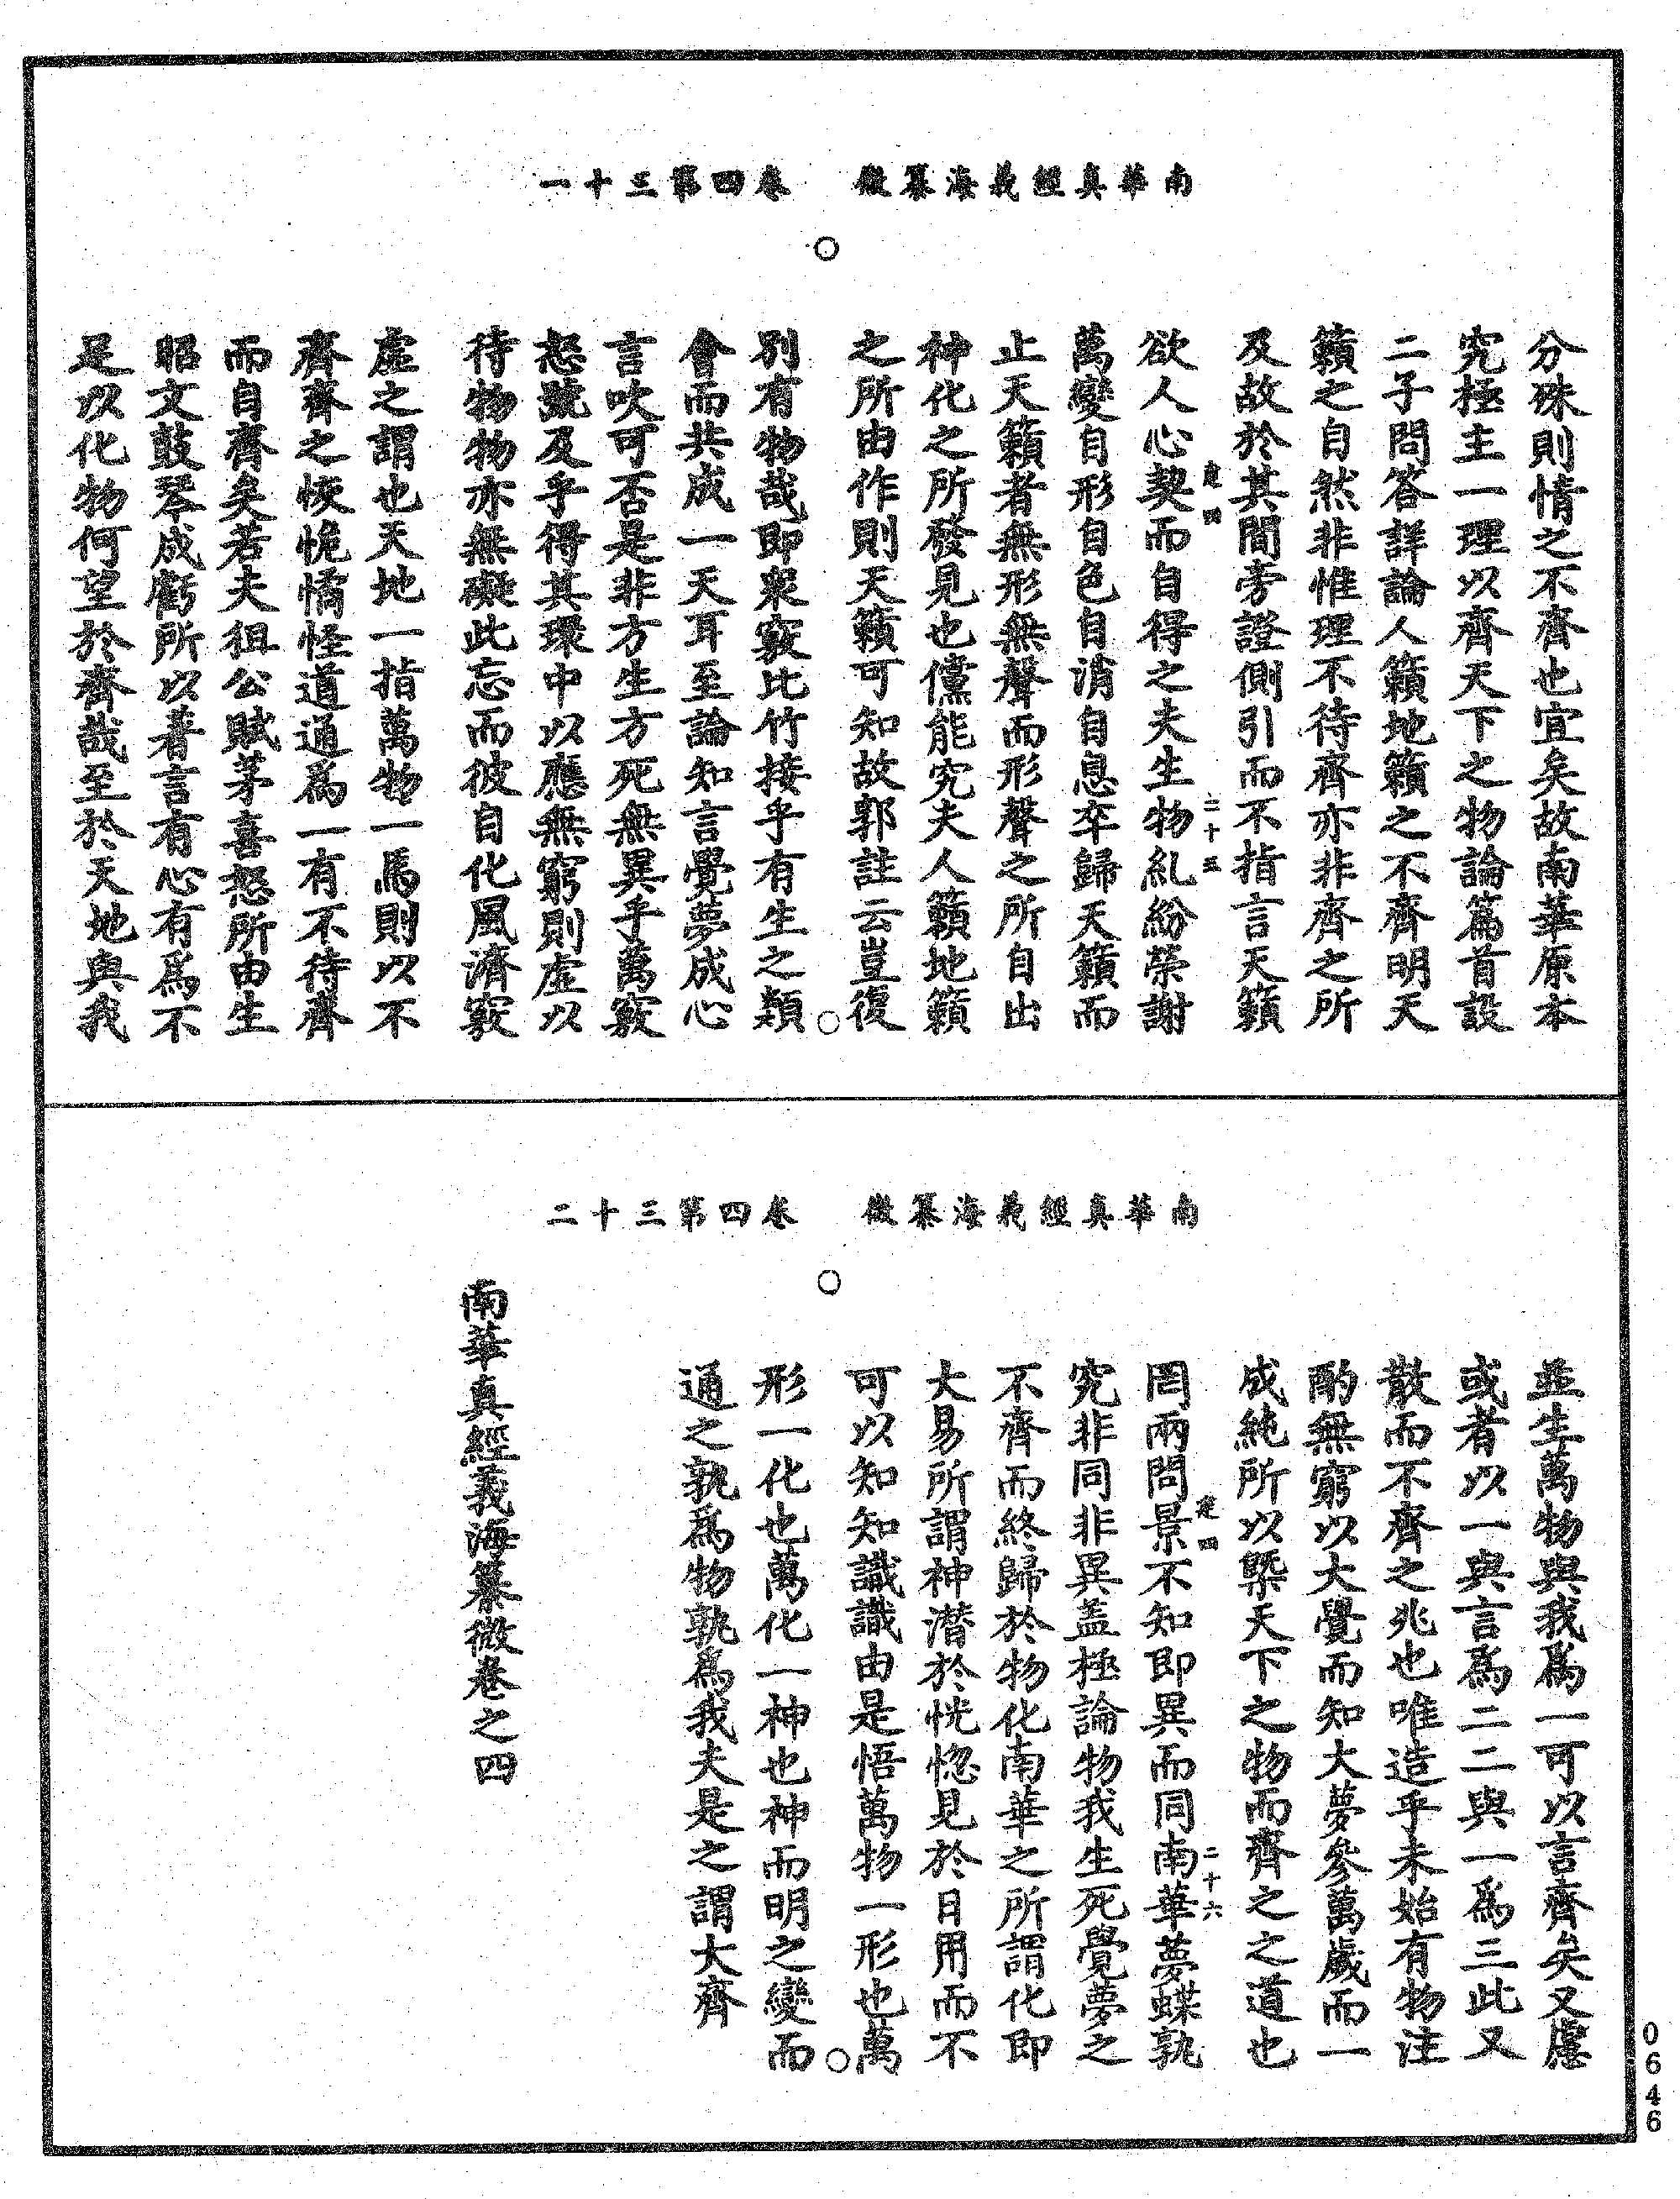 南華真經義海纂微　卷四第三十一
分殊則情之不齊也宜矣故南華原本
究極主一理以齊天下之物論篇首設
二子問答詳論人籟地籟之不齊明天
籟之自然非惟理不待齊亦非齊之所
及故於其間旁證側引而不指言天籟
建四　二十五
欲人心契而自得之夫生物糺紛榮謝
萬變自形自色自消自息卒歸天籟而
止天籟者無形無聲而形聲之所自出
神化之所發見也儻能究夫人籟地籟
之所由作則天籟可知故郭註云豈復
別有物哉即衆竅比竹接乎有生之類
會而共成一天耳至論知言覺夢成心
言吹可否是非方生方死無異乎萬竅
怒號及乎得其環中以應無窮則虛以
待物物亦無礙此忘而彼自化風濟竅
虛之謂也天地一指萬物一馬則以不
齊齊之恢恑憰怪道通爲一有不待齊
而自齊矣若夫狙公賦茅喜怒所由生
昭文鼓琴成虧所以著言有心有爲不
足以化物何望於齊哉至於天地與我
南華真經義海纂微　卷四第三十二
並生萬物與我爲一可以言齊矣又慮
或者以一與言爲二二與一爲三此又
散而不齊之兆也唯造乎未始有物注
酌無窮以大覺而知大夢參萬歲而一
成純所以槩天下之物而齊之之道也
建四　二十六
罔兩問景不知即異而同南華夢蝶孰
究非同非異盖極論物我生死覺夢之
不齊而終歸於物化南華之所謂化即
大易所謂神潛於恍惚見於日用而不
可以知知識識由是悟萬物一形也萬
形一化也萬化一神也神而明之變而
通之孰爲物孰爲我夫是之謂大齊
南華真經義海纂微卷之四
0646